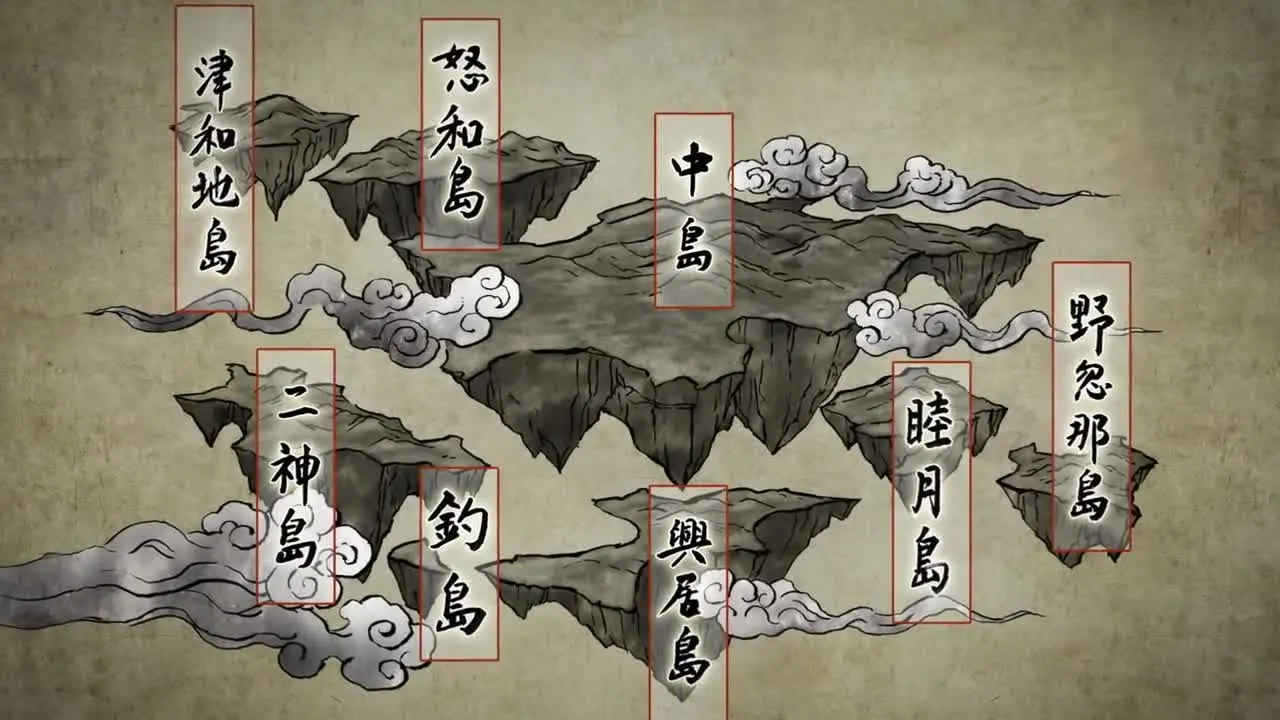 津和地島
怒和島
中島
野忽那島
二神島
睦月島
釣島
興居島